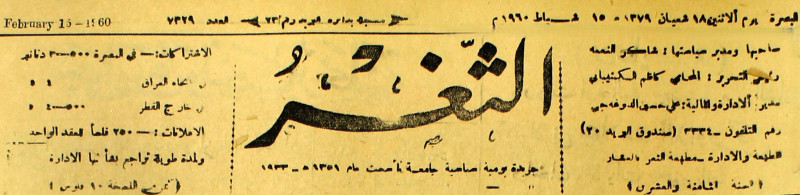 البصرة يوم الاثنين ١٨ شعبان ١٣٧٩ - ١٥ شباط ١٩٦٠ م
مسجلة بدائرة البريد رقم ٢٣
العدد ٧٣٢٩
February 15 - 1960
صاحبها ومدير سياستها : شاكر النعمة
رئيس التحرير : المحامي كاظم
مدير الادارة والمالية : علي حسين
رقم التلفون - ٣٣٣٤ (صندوق البريد ٢٠)
الطبعة والادارة - مطبعة الثغر بالعشار
(السنة الثامنة والعشرين)
الثَّغْرُ
جريدة يومية سياسية جامعة تأسست عام ١٣٥١ هـ - ١٩٣٣
الاشتراكات :- في البصرة ٥٠٠-٣ دنانير
انحاء العراق ٥ ٤
خارج القطر ٥٠٠-٤ ٥
الاعلانات :- ٢٥٠ فلساً للعقد الواحد
ولمدة طويلة تراجع بشأنها الادارة
(ثمن النسخة ١٠ فلوس)